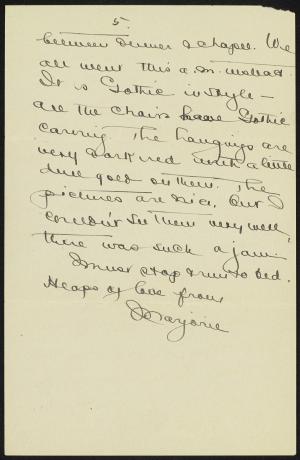 5.
between dinner & chapel. We
all went this a.m. instead.
It is Gothic in style –
all the chairs have Gothic
carving. The hangings are
very dark red with a little
dull gold on them. The
pictures are nice, but I
couldn't see them very well,
there was such a jam.
I must stop & run to bed.
Heaps of love from
Marjorie